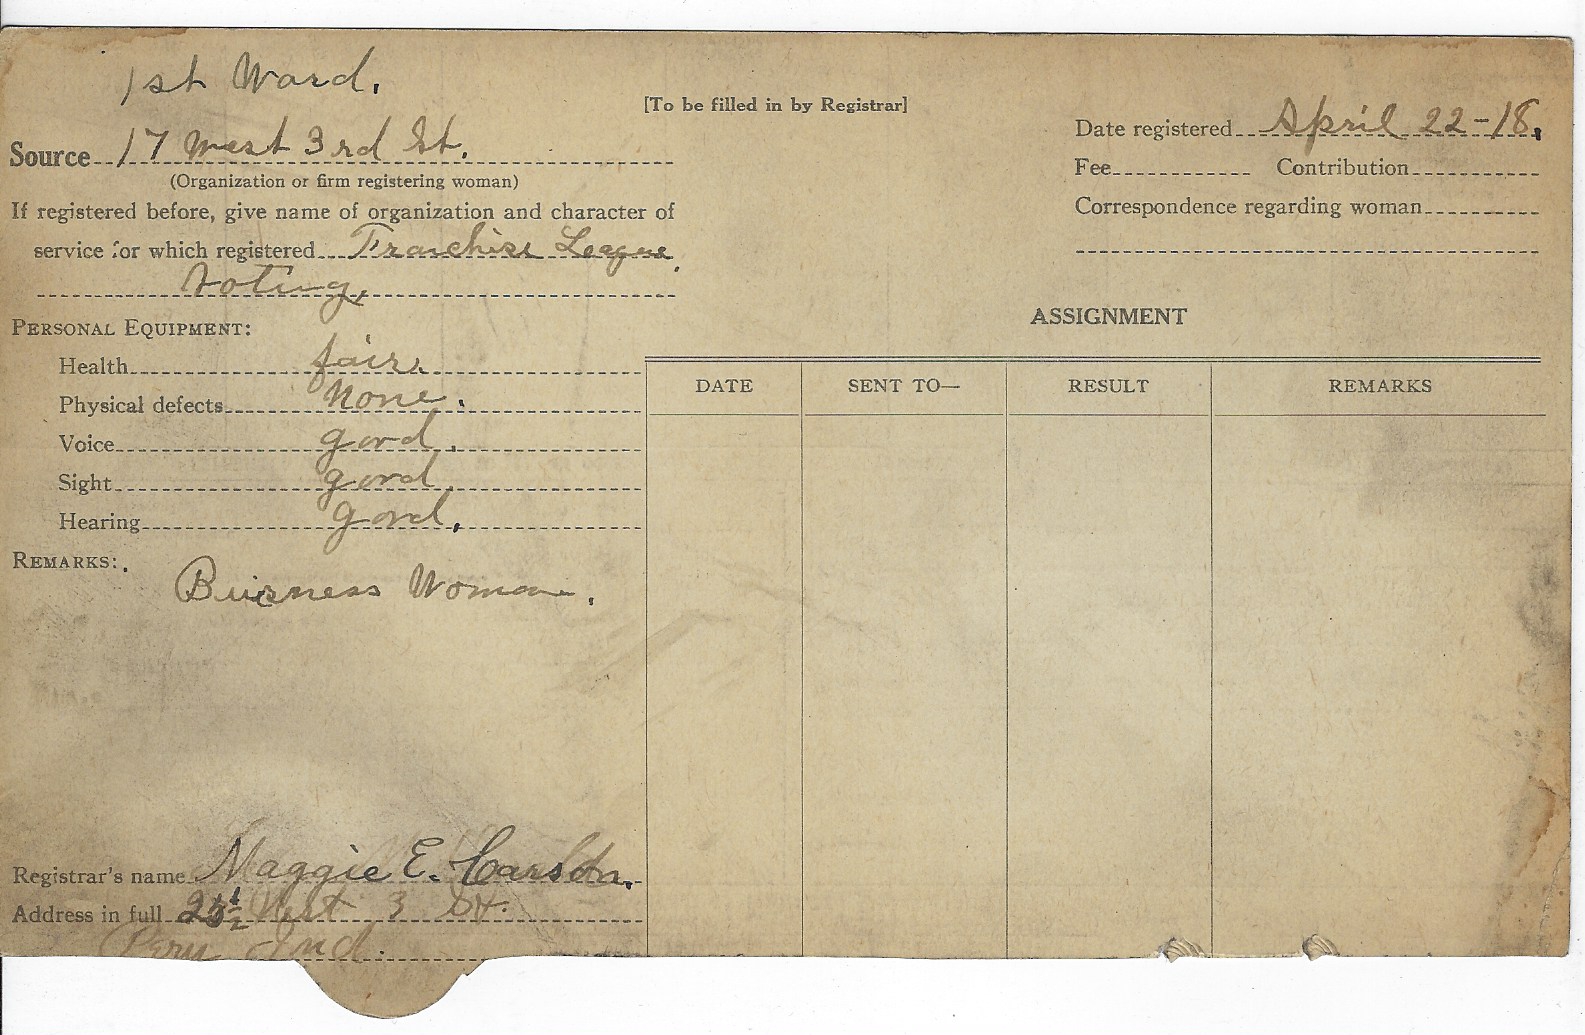 1st Ward.
[To be filled in by Registrar]
Date registered April 22-18.
Source 17 West 3rd St.
(Organization or firm registering woman)
Fee Contribution
If registered before, give name of organization and character of
Correspondence regarding woman
service for which registered Franchise League
Voting,
PERSONAL EQUIPMENT:
ASSIGNMENT
Health fair.
DATE SENT TO— RESULT REMARKS
Physical defects None.
Voice good.
Sight good.
Hearing good.
REMARKS:
Buisness Woman.
Registrar's name Maggie E. Carson.
Address in full 23½ West 3 St.
Peru Ind.